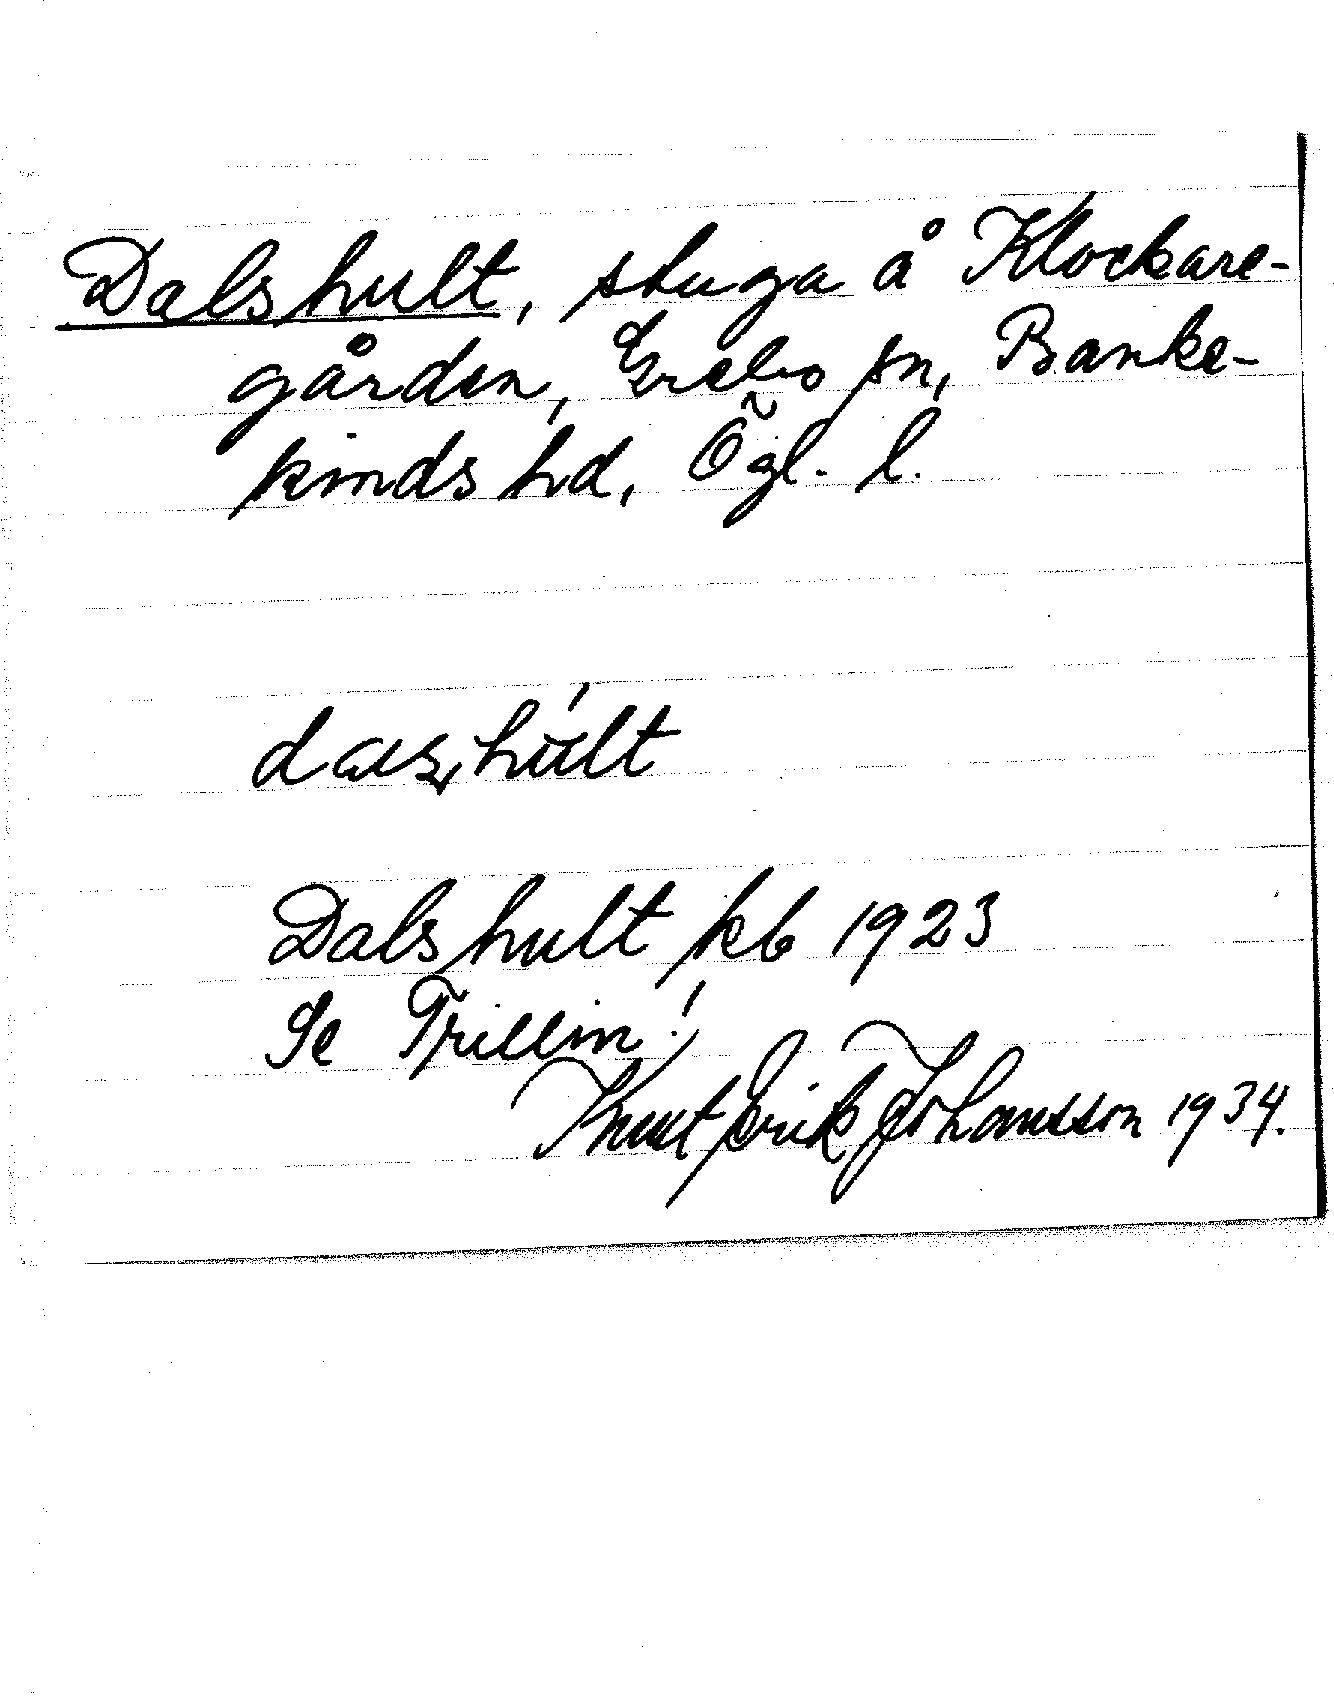 Dalshult, stuga å Klockare-
gården, Grebo sn, Banke-
kinds hd, Ögl. l.
Dalshult kb 1923
Se Trillin!
Knut Erik Johansson 1934.